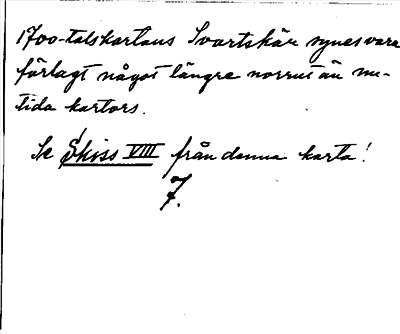 1700-talskartans Svartskär synes vara
förlagt något längre norrut än nu-
tida kartors.
Se Skiss VIII från denna karta!
7.